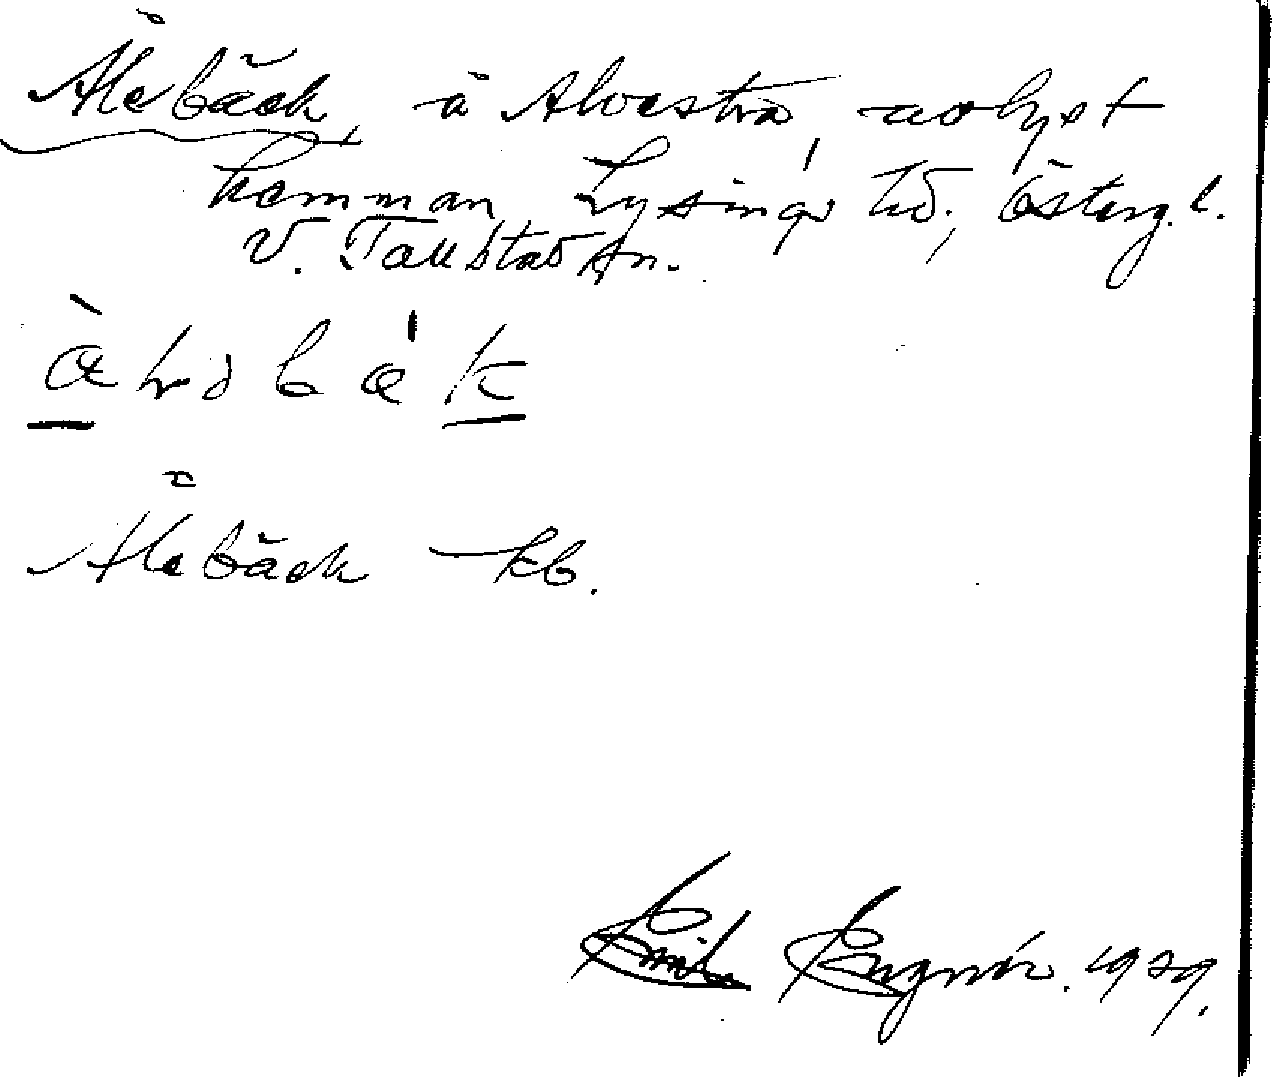 Ålebäck, å Alvastra, avlyst
hemman, Lysings hd, Österg. l.
V. Tollstad sn.
Ålebäck kb.
Emil Engnér. 1929.